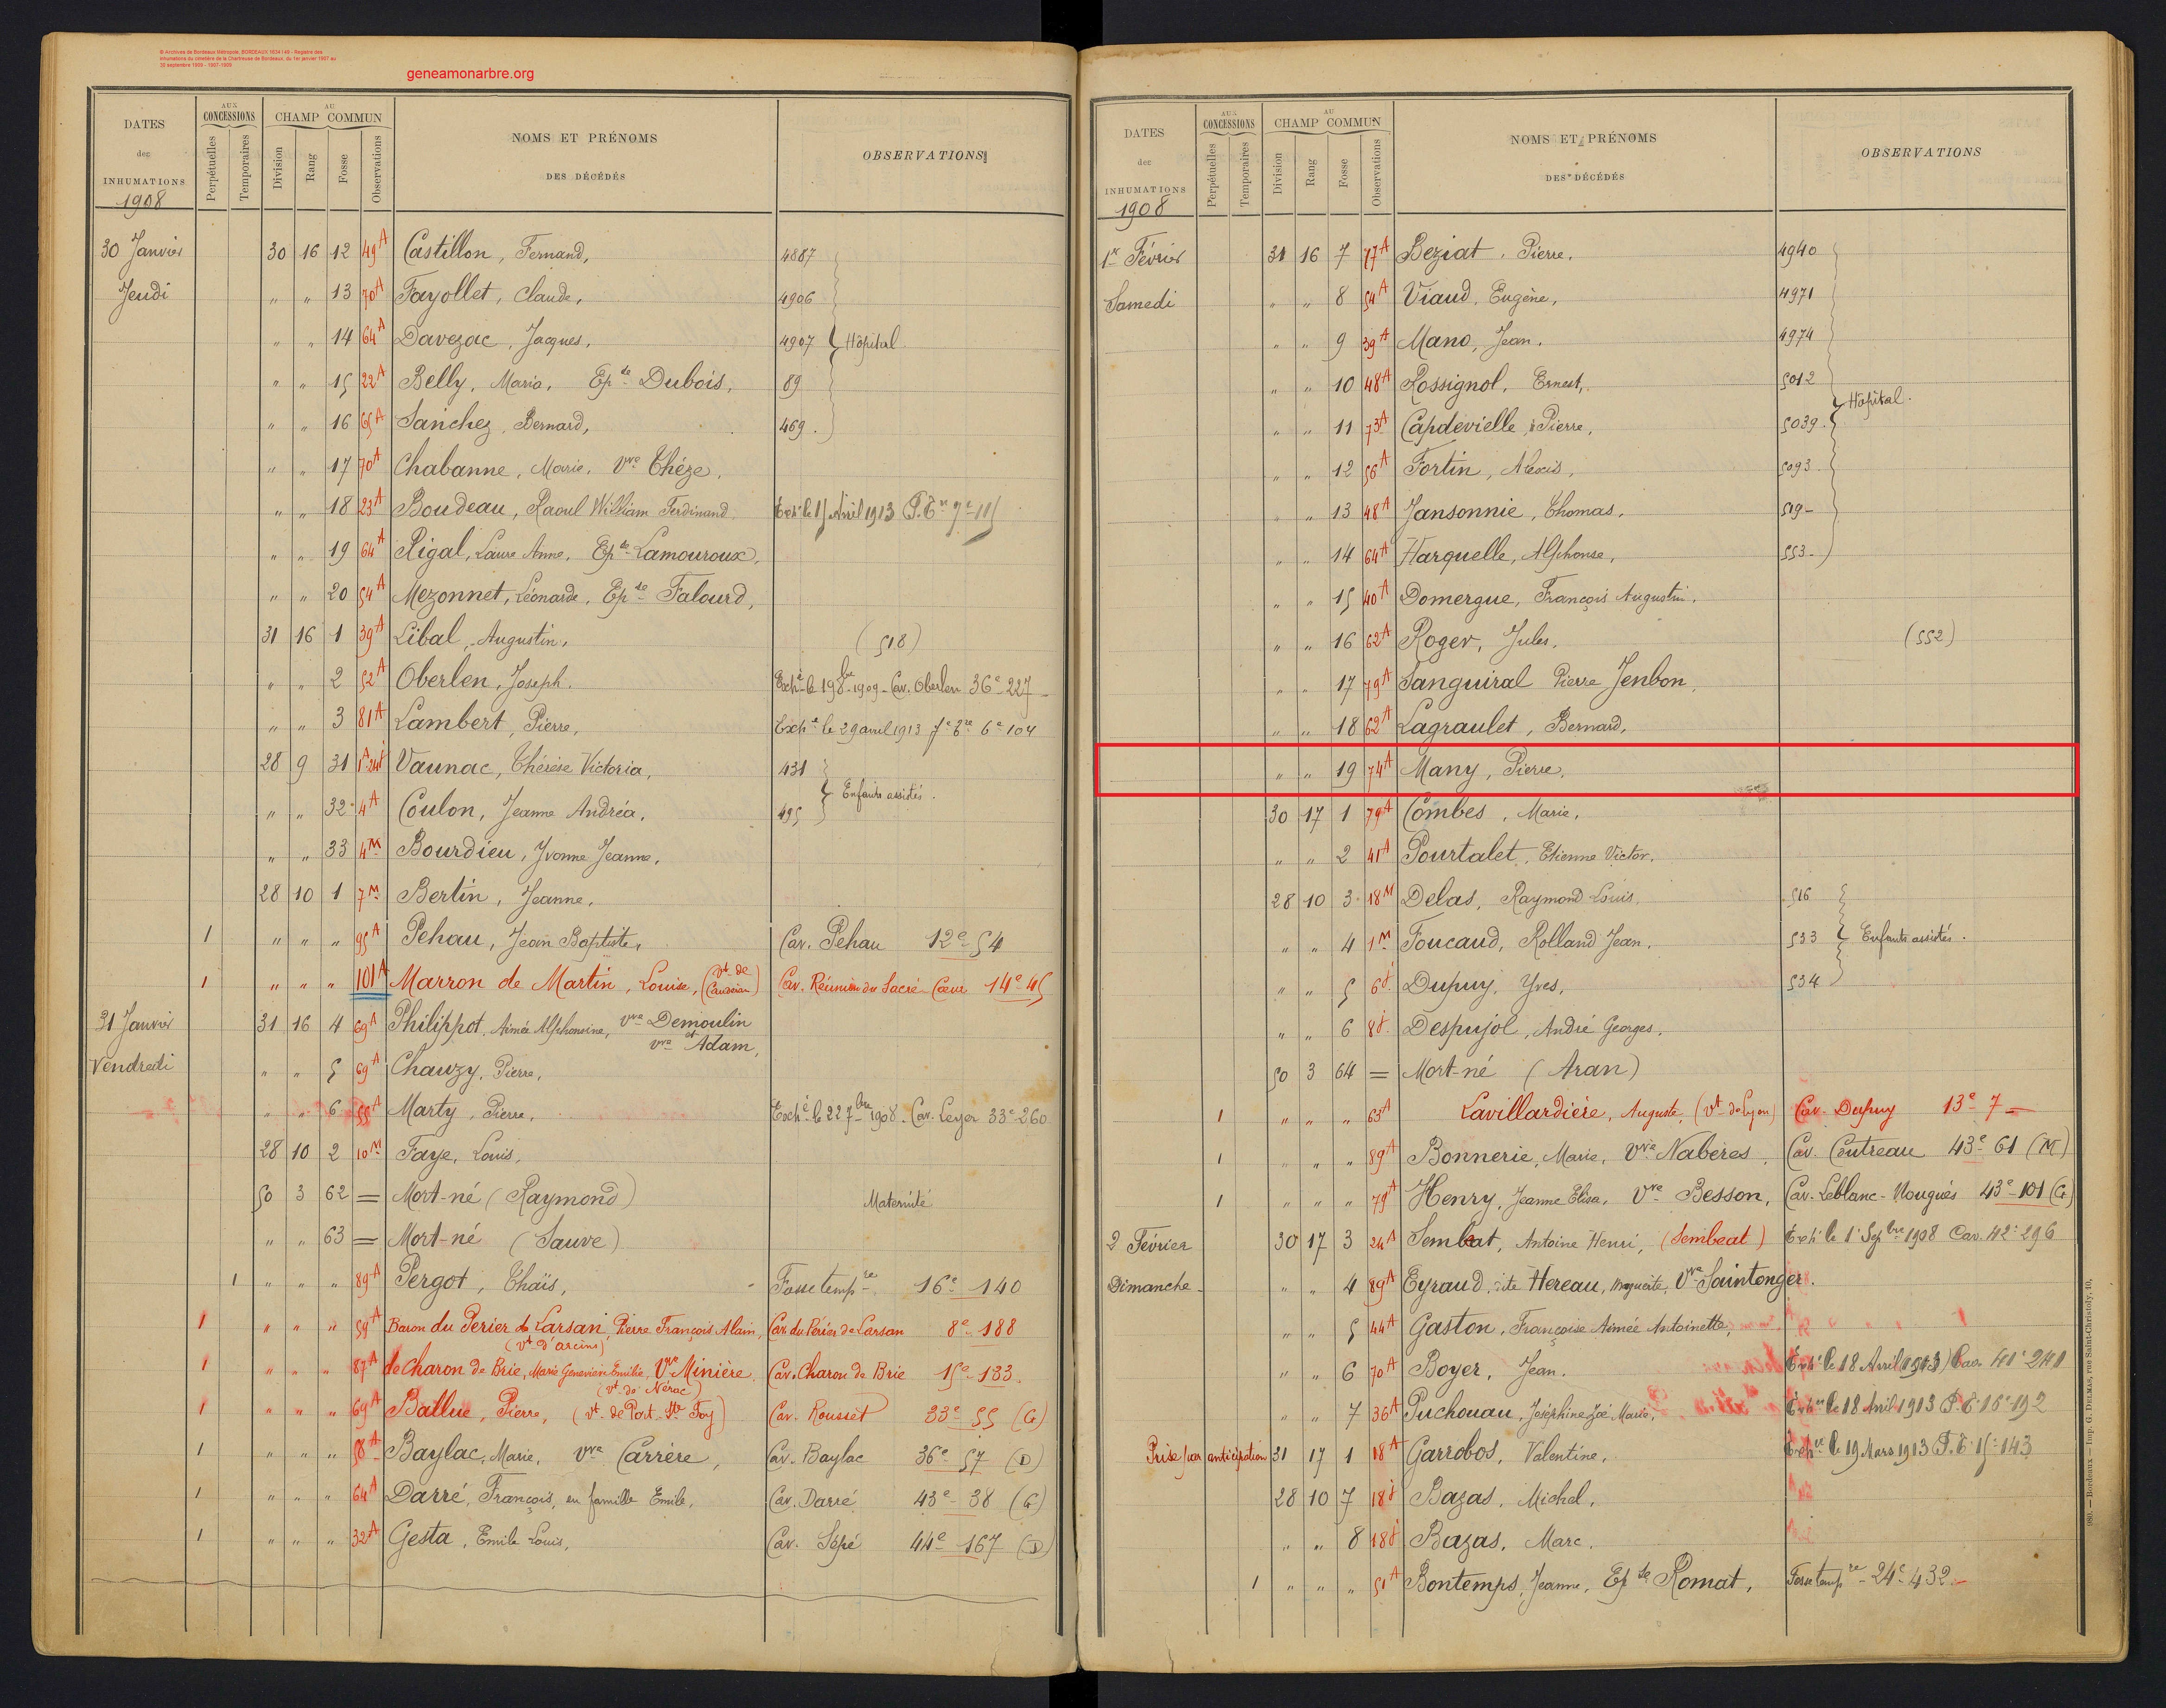 © Archives de Bordeaux Métropole, BORDEAUX 1634 I 49 - Registre des
inhumations du cimetière de la Chartreuse de Bordeaux, du 1er janvier 1907 au
30 septembre 1909 - 1907-1909
geneamonarbre.org
DATES des INHUMATIONS 1908
AUX CONCESSIONS Perpétuelles Temporaires
AU CHAMP COMMUN Division Rang Fosse Observations
NOMS ET PRÉNOMS DES DÉCÉDÉS
OBSERVATIONS
30 Janvier 30 16 12 49A Castillon, Fernand, 4887
Jeudi " " 13 70A Fayollet, Claude, 4906
" " 14 64A Davezac, Jacques, 4907 Hôpital
" " 15 22A Belly, Maria, Epse Dubois, 89
" " 16 65A Sanchez, Bernard, 469.
" " 17 70A Chabanne, Marie, Vve Thèze,
" " 18 23A Boudeau, Raoul William Ferdinand. Exhé le 15 Avril 1913
" " 19 64A Rigal, Laure Anne, Epse Lamouroux,
" " 20 54A Mezonnet, Léonarde, Epse Falourd,
31 16 1 39A Libal, Augustin, (518)
" " 2 52A Oberlen, Joseph. Exhé le 19 8bre 1909 - Cav. Oberlen 36e 227
" " 3 81A Lambert, Pierre, Exhé le 29 avril 1913
28 9 31 Vaunac, Thérèse Victoria, 431
" " 32 4A Coulon, Jeanne Andréa, 495 Enfants assistés.
" " 33 4M Bourdieu, Yvonne Jeanne,
28 10 1 7M Bertin, Jeanne,
1 " " " 95A Pehau, Jean Baptiste, Cav. Pehau 12e 54
1 " " " 101A Marron de Martin, Louise, (vt de Caudéran) Cav. Réunion du Sacré-Cœur 14e 45
31 Janvier 31 16 4 69A Philippot, Aimée Alphonsine, vve Demoulin
et vve Adam,
Vendredi " " 5 69A Chauzy, Pierre,
" " 6 55A Marty, Pierre, Exhé le 22 7bre 1908. Cav. Leyer 33e 260
28 10 2 10M Faye, Louis,
50 3 62 = Mort-né (Raymond) Maternité
" " 63 = Mort-né (Sauve)
1 " " " 89A Pergot, Thaïs, Fosse tempre 16e 140
1 " " " 59A Baron du Perier de Larsan, Pierre François Alain, Cav. du Périer de Larsan 8e 188
(vt d'Arcins)
1 " " " 87A de Charon de Brie, Marie Geneviève Emilie, Vve Minière Cav. Charon de Brie 15e 133
(vt de Nérac)
1 " " " 69A Ballue, Pierre, (vt de Port-Ste Foy) Cav. Rousset 33e 55 (G)
1 " " " 58A Baylac, Marie, vve Carrère, Cav. Baylac 36e 57 (D)
1 " " " 64A Darré, François, en famille Emile, Cav. Darré 43e 38 (G)
1 " " " 32A Gesta, Emile Louis, Cav. Sépé 44e 167 (D)
DATES des INHUMATIONS 1908
AUX CONCESSIONS Perpétuelles Temporaires
AU CHAMP COMMUN Division Rang Fosse Observations
NOMS ET PRÉNOMS DES DÉCÉDÉS
OBSERVATIONS
1er Février 31 16 7 77A Beziat, Pierre, 4940
Samedi " " 8 54A Viaud, Eugène, 4971
" " 9 39A Mano, Jean, 4974
" " 10 48A Rossignol, Ernest, 5012
Hôpital.
" " 11 73A Capdevielle, Pierre, 5039
" " 12 56A Fortin, Alexis, 5093
" " 13 48A Jansonnie, Thomas, 519
" " 14 64A Harquelle, Alphonse, 553
" " 15 40A Domergue, François Augustin,
" " 16 62A Roger, Jules, (552)
" " 17 79A Sanguiral Pierre Jenbon,
" " 18 62A Lagraulet, Bernard,
" " 19 74A Many, Pierre,
30 17 1 79A Combes, Marie,
" " 2 41A Pourtalet, Etienne Victor,
28 10 3 18M Delas, Raymond Louis, 516
" " 4 1M Foucaud, Rolland Jean, 533 Enfants assistés.
" " 5 6j Dupuy, Yves, 534
" " 6 8j Despujol, André Georges,
50 3 64 = Mort-né (Aran)
1 " " " 63A Lavillardière, Auguste, (vt de Lyon) Cav. Dupuy 13e 7
1 " " " 89A Bonnerie, Marie, Vve Nabères, Cav. Coutreau 43e 61 (M)
1 " " " 79A Henry, Jeanne Elisa, Vve Besson, Cav. Leblanc-Nouguès 43e 101 (G)
2 Février 30 17 3 24A Sembat, Antoine Henri, (Sembeat) Exhé le 1er Sepbre 1908 Cav. 42e 296
Dimanche " " 4 89A Eyraud, dite Hereau, Marguerite, Vve Saintonger.
" " 5 44A Gaston, Françoise Aimée Antoinette,
" " 6 70A Boyer, Jean. Exhé le 18 Avril 1913 Cav. 41e 241
" " 7 36A Puchouau, Joséphine Zoé Marie, Exhée le 18 Avril 1913 P. T. 16e 192
Prise par anticipation 31 17 1 18A Garrobos, Valentine, Exhée le 19 Mars 1913 P. T. 15e 143
28 10 7 18j Bazas, Michel,
" " 8 18j Bazas, Marc,
1 " " " 51A Bontemps, Jeanne, Epse Romat, Fosse tempre 24e 432
980. — Bordeaux — Imp. G. DELMAS, rue Saint-Christoly, 10.